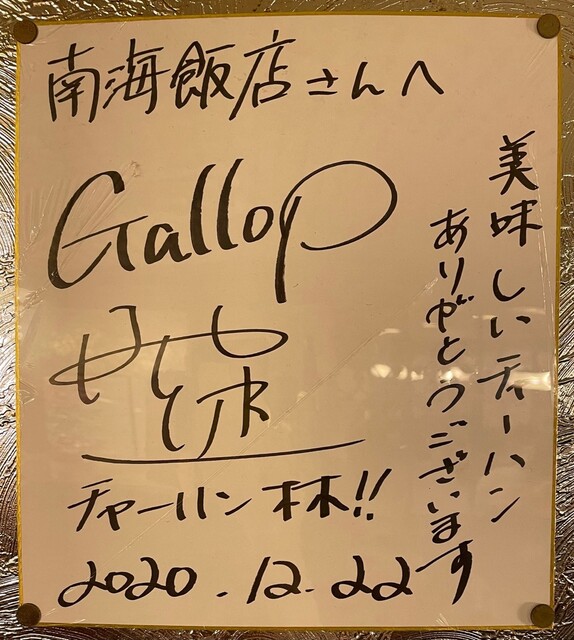 南海飯店さんへ
Gallop
チャーハン 林!!
2020.12.22
美味しいチャーハン
ありがとうございます